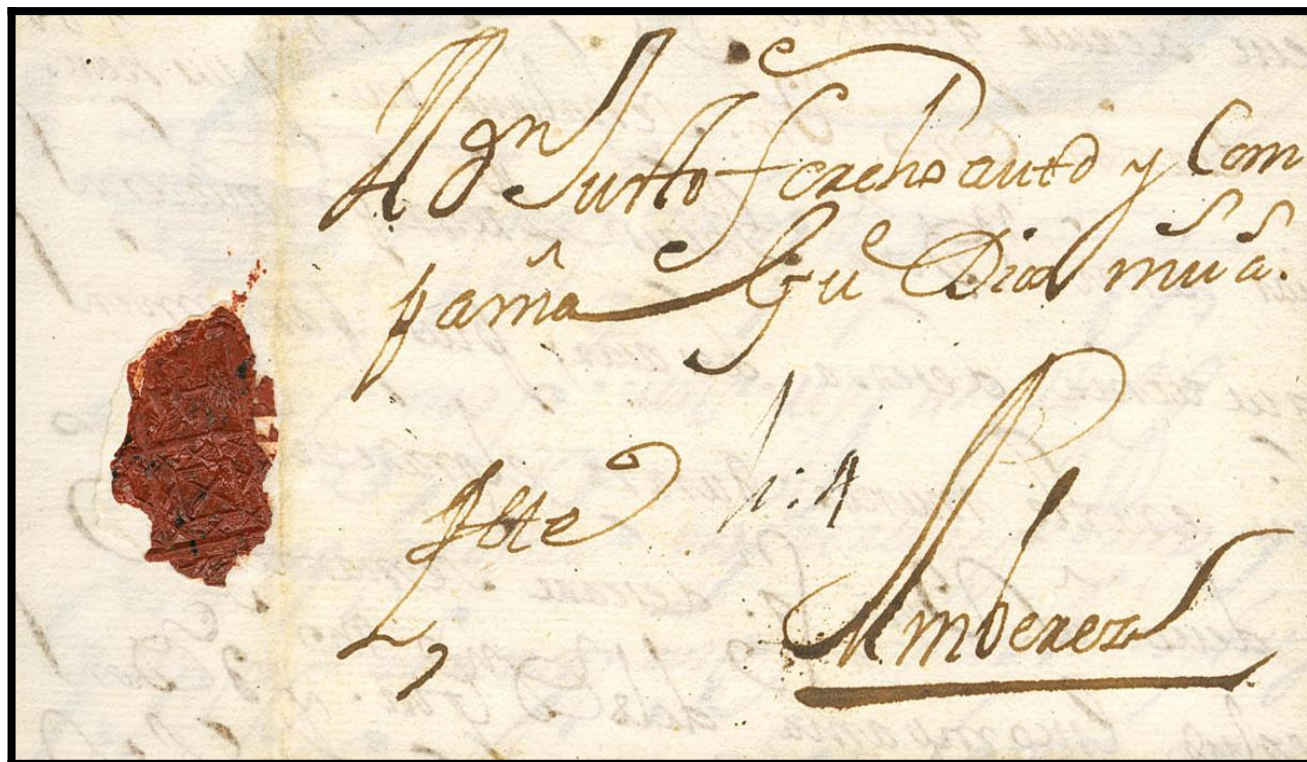 A Dn Justo forchoauto y Com
pañia Gu̅e Dios ms as.
Pte 1:4
Amberez